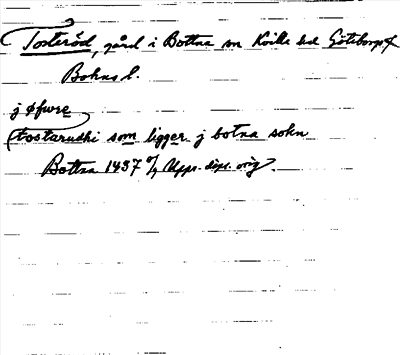 Tosteröd, gård i Bottna sn Kville hd Göteborgs o
Bohus l.
j øfwre
tostarudhi som ligger j botna sokn
Bottna 1437 Upps. dipl. orig.